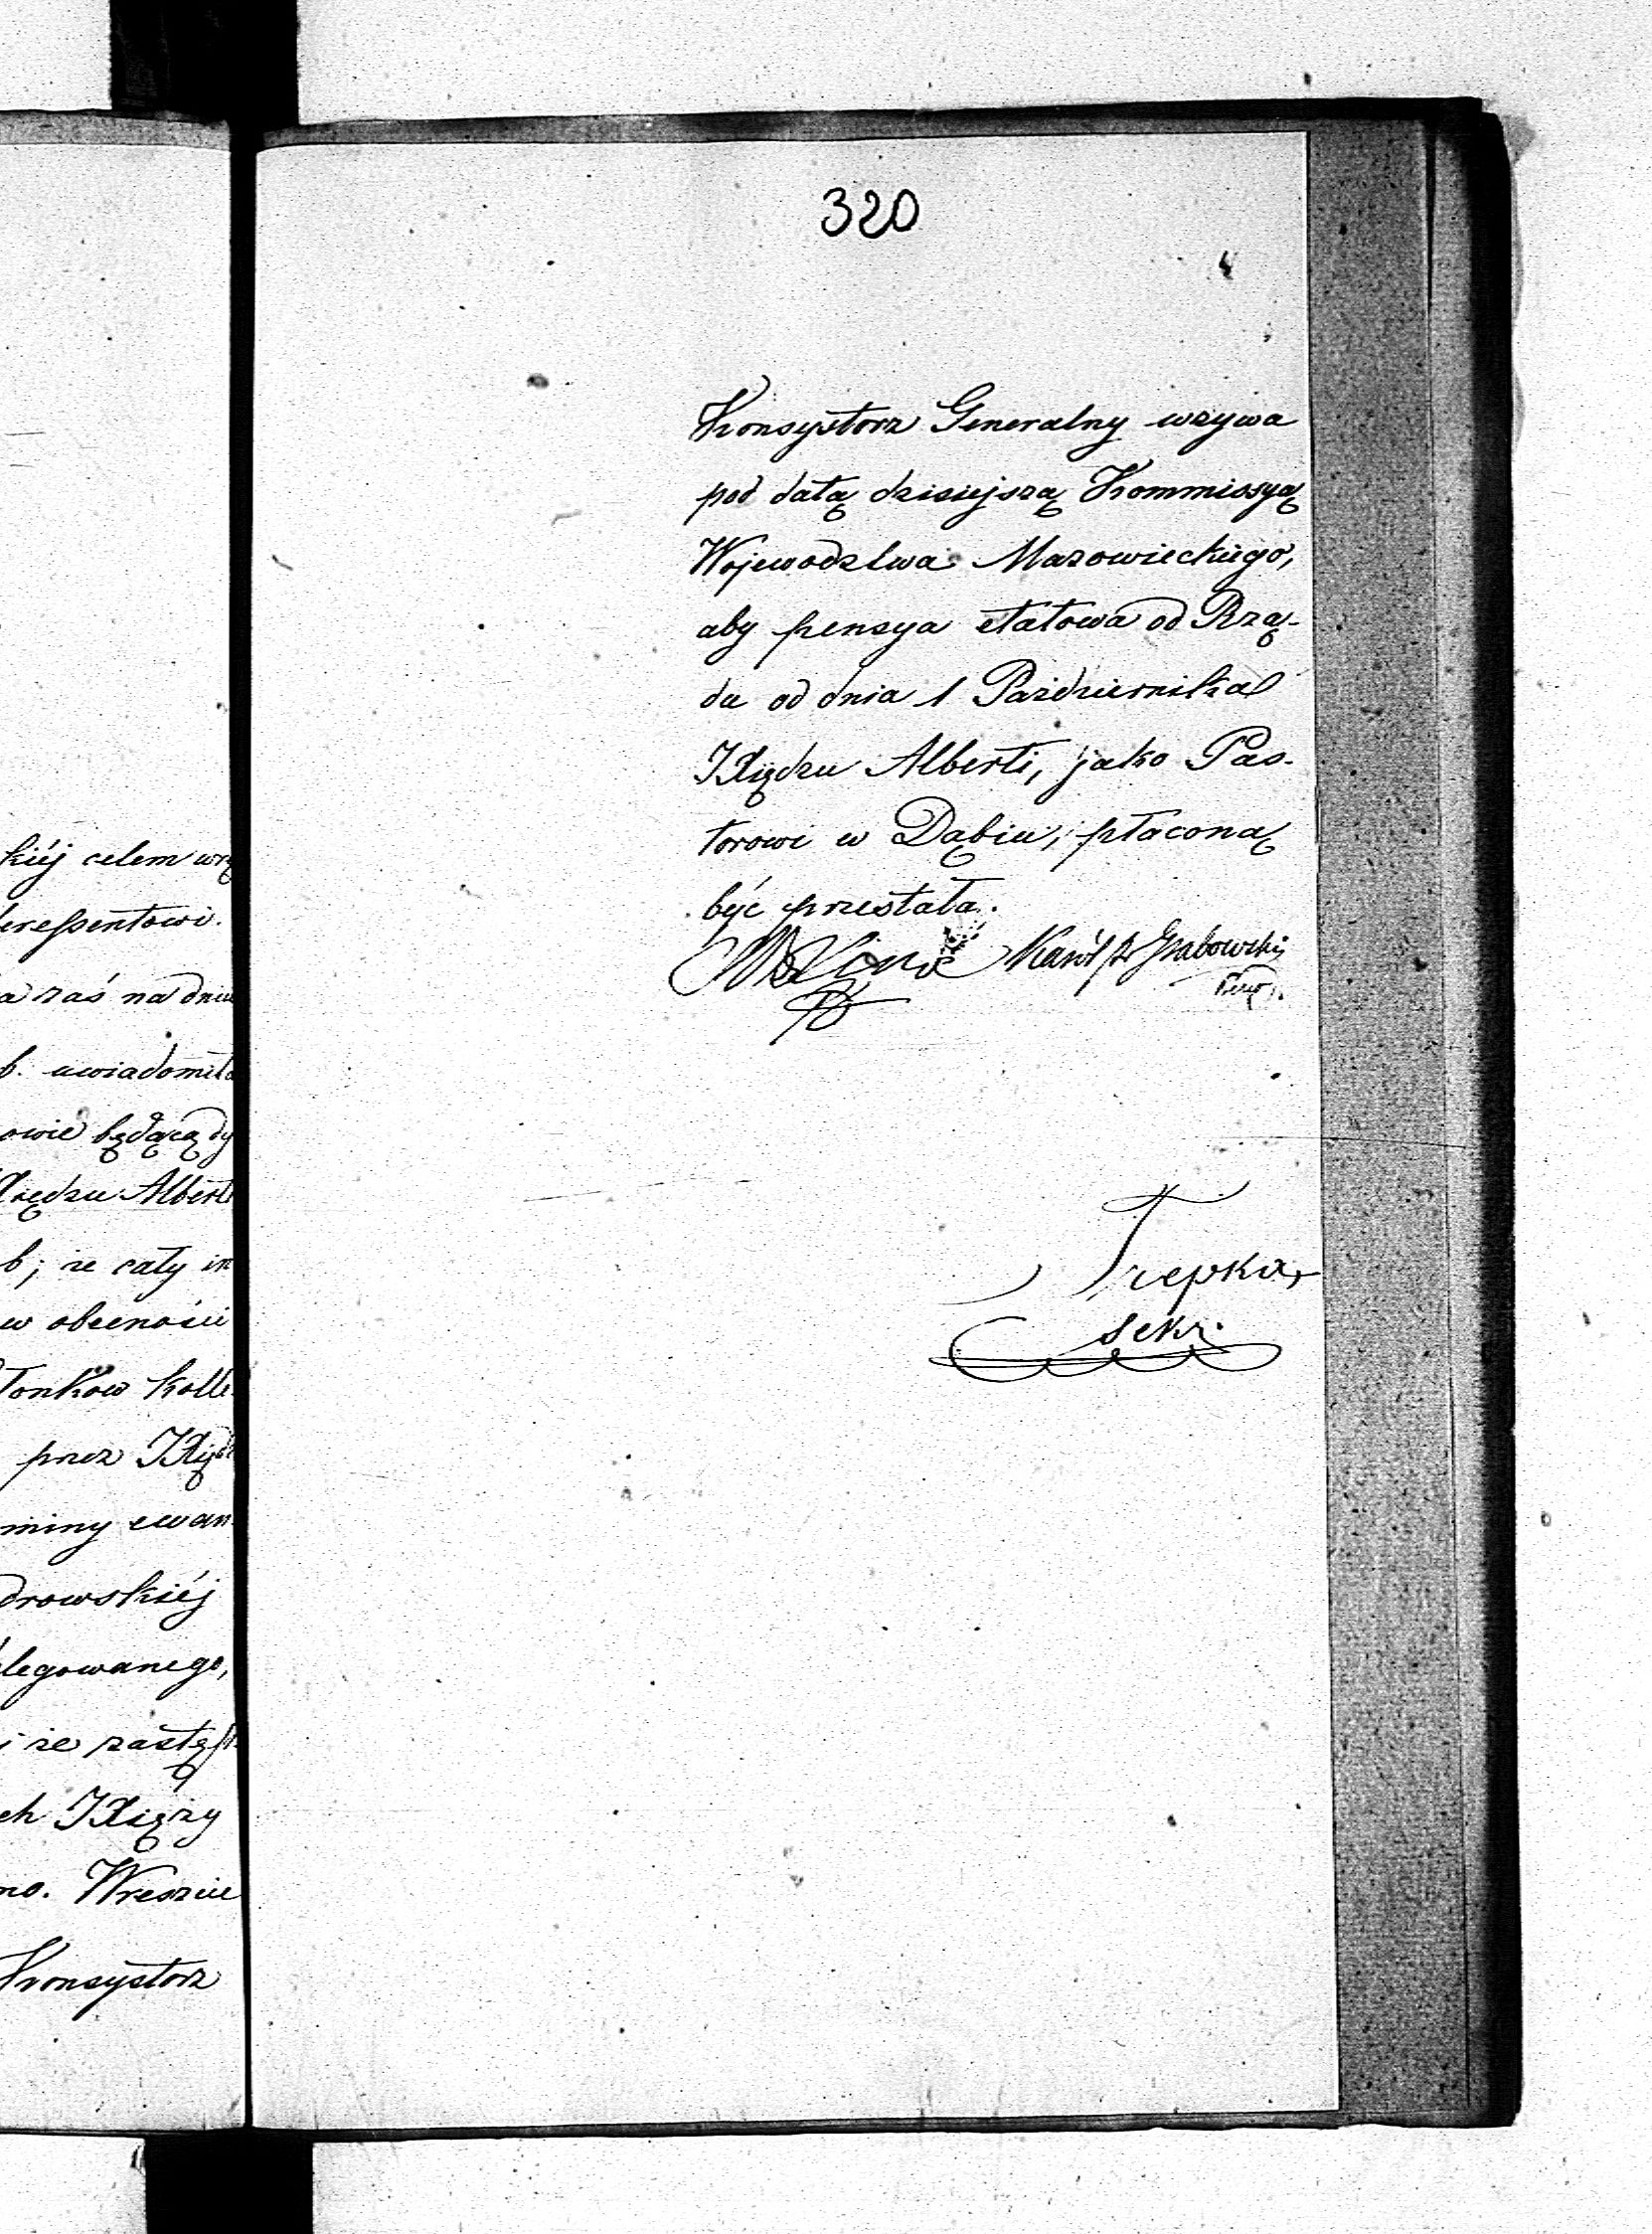 kiéj celem
teressentowi.
a zaś na dniu
b. uwiadomiła
owie będącą
Xiędzu Alberti
b; że cały
w obecności
łonków
przez
miny ewan
drowskiéj
legowanego,
i że
ch IXięży
no. Wreszcie
Konsystorz
320
Konsystorz Generalny wzywa
pod datą dzisiejszą Kommissyą
Wojewodztwa Mazowieckiego,
aby pensya etatowa od Rzą-
du od dnia 1 Października
IXiędzu Alberti, jako Pas-
torowi w Dąbiu, płaconą
być przestała.
Karól Grabowski
Trepka
sekr.